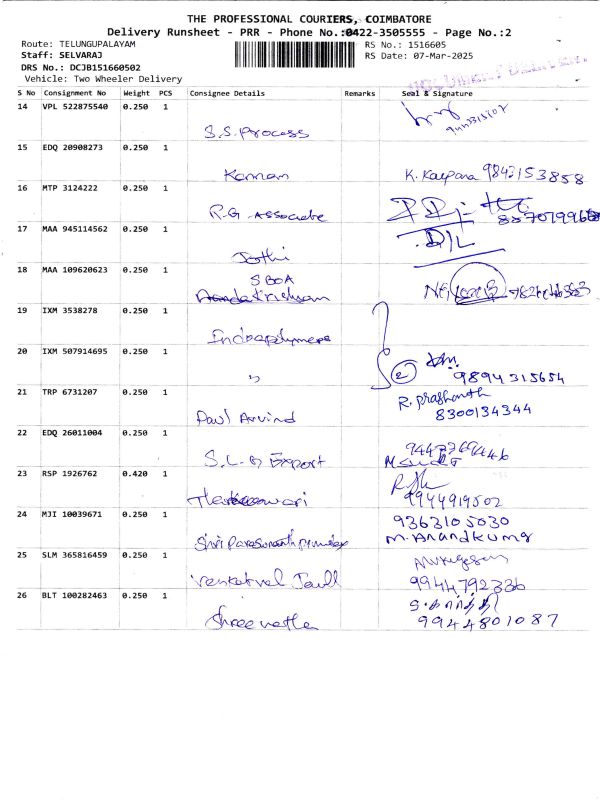 THE PROFESSIONAL COURIERS, COIMBATORE
Delivery Runsheet - PRR - Phone No.:0422-3505555 - Page No.:2
Route: TELUNGUPALAYAM
RS No.: 1516605
Staff: SELVARAJ
RS Date: 07-Mar-2025
DRS No.: DCJB151660502
Vehicle: Two Wheeler Delivery
S No Consignment No Weight PCS Consignee Details Remarks Seal & Signature
14 VPL 522875540 0.250 1
S.S. Process
15 EDQ 20908273 0.250 1
Kannan K. Kalpana 9843153858
16 MTP 3124222 0.250 1
R.G. Associate
17 MAA 945114562 0.250 1
Jothi
18 MAA 109620623 0.250 1
SBOA
19 IXM 3538278 0.250 1
20 IXM 507914695 0.250 1
" 2 9894315654
21 TRP 6731207 0.250 1
Paul Arvind R. Prashanth
8300134344
22 EDQ 26011004 0.250 1
S.L.G Export
23 RSP 1926762 0.420 1
9944919502
24 MJI 10039671 0.250 1
9363105030
Shri M. Anandkumar
25 SLM 365816459 0.250 1
9944792336
26 BLT 100282463 0.250 1
9944801087